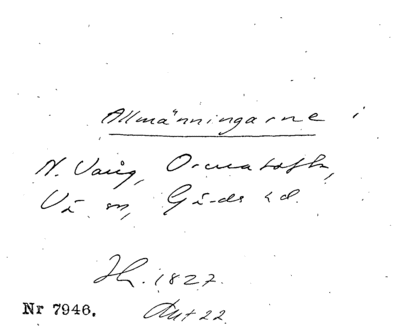 Allmänningarne i
N. Vång, Ormatofta,
Gärds hd.
1827.
Nr 7946.
Akt 22